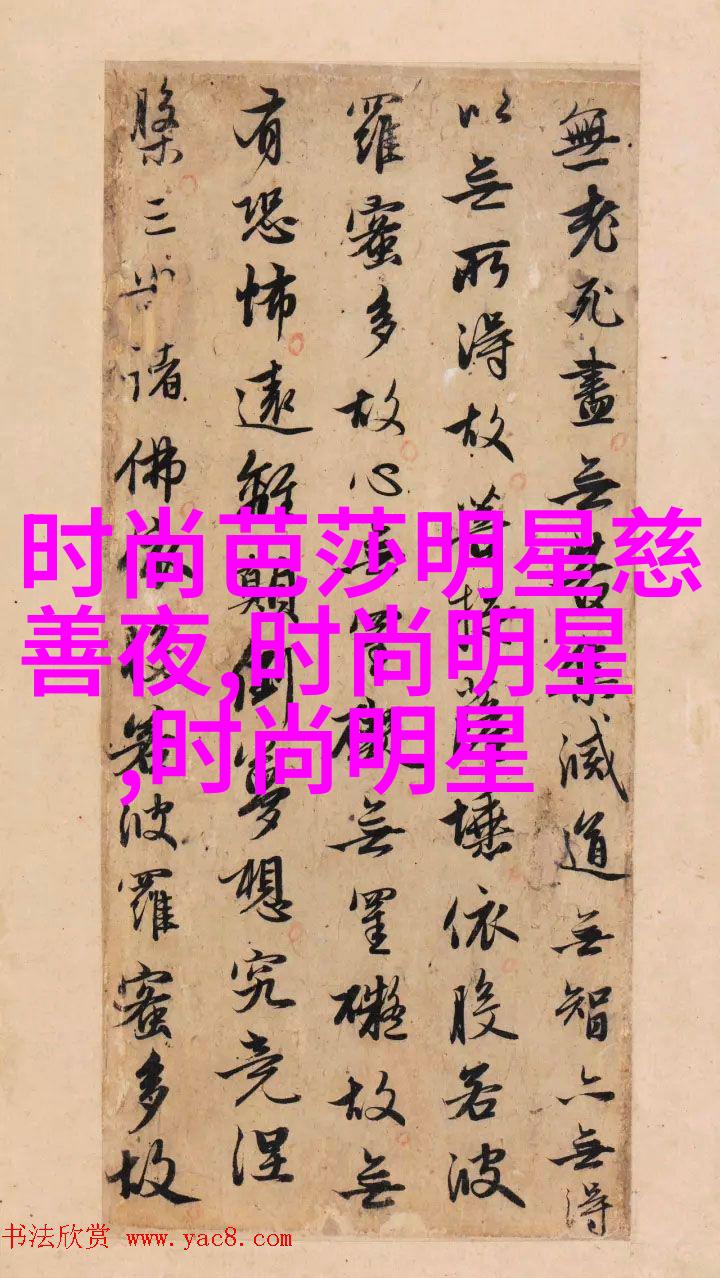 無老死盡无苦集滅道无智亦無得
以无所得故菩提薩埵依般若波
羅蜜多故心無罣礙无罣礙故無
有恐怖遠離顛倒夢想究竟涅
槃三世諸佛依般若波羅蜜多故
时尚芭莎明星慈
善夜,时尚明星
,时尚明星
书法欣赏 www.yac8.com